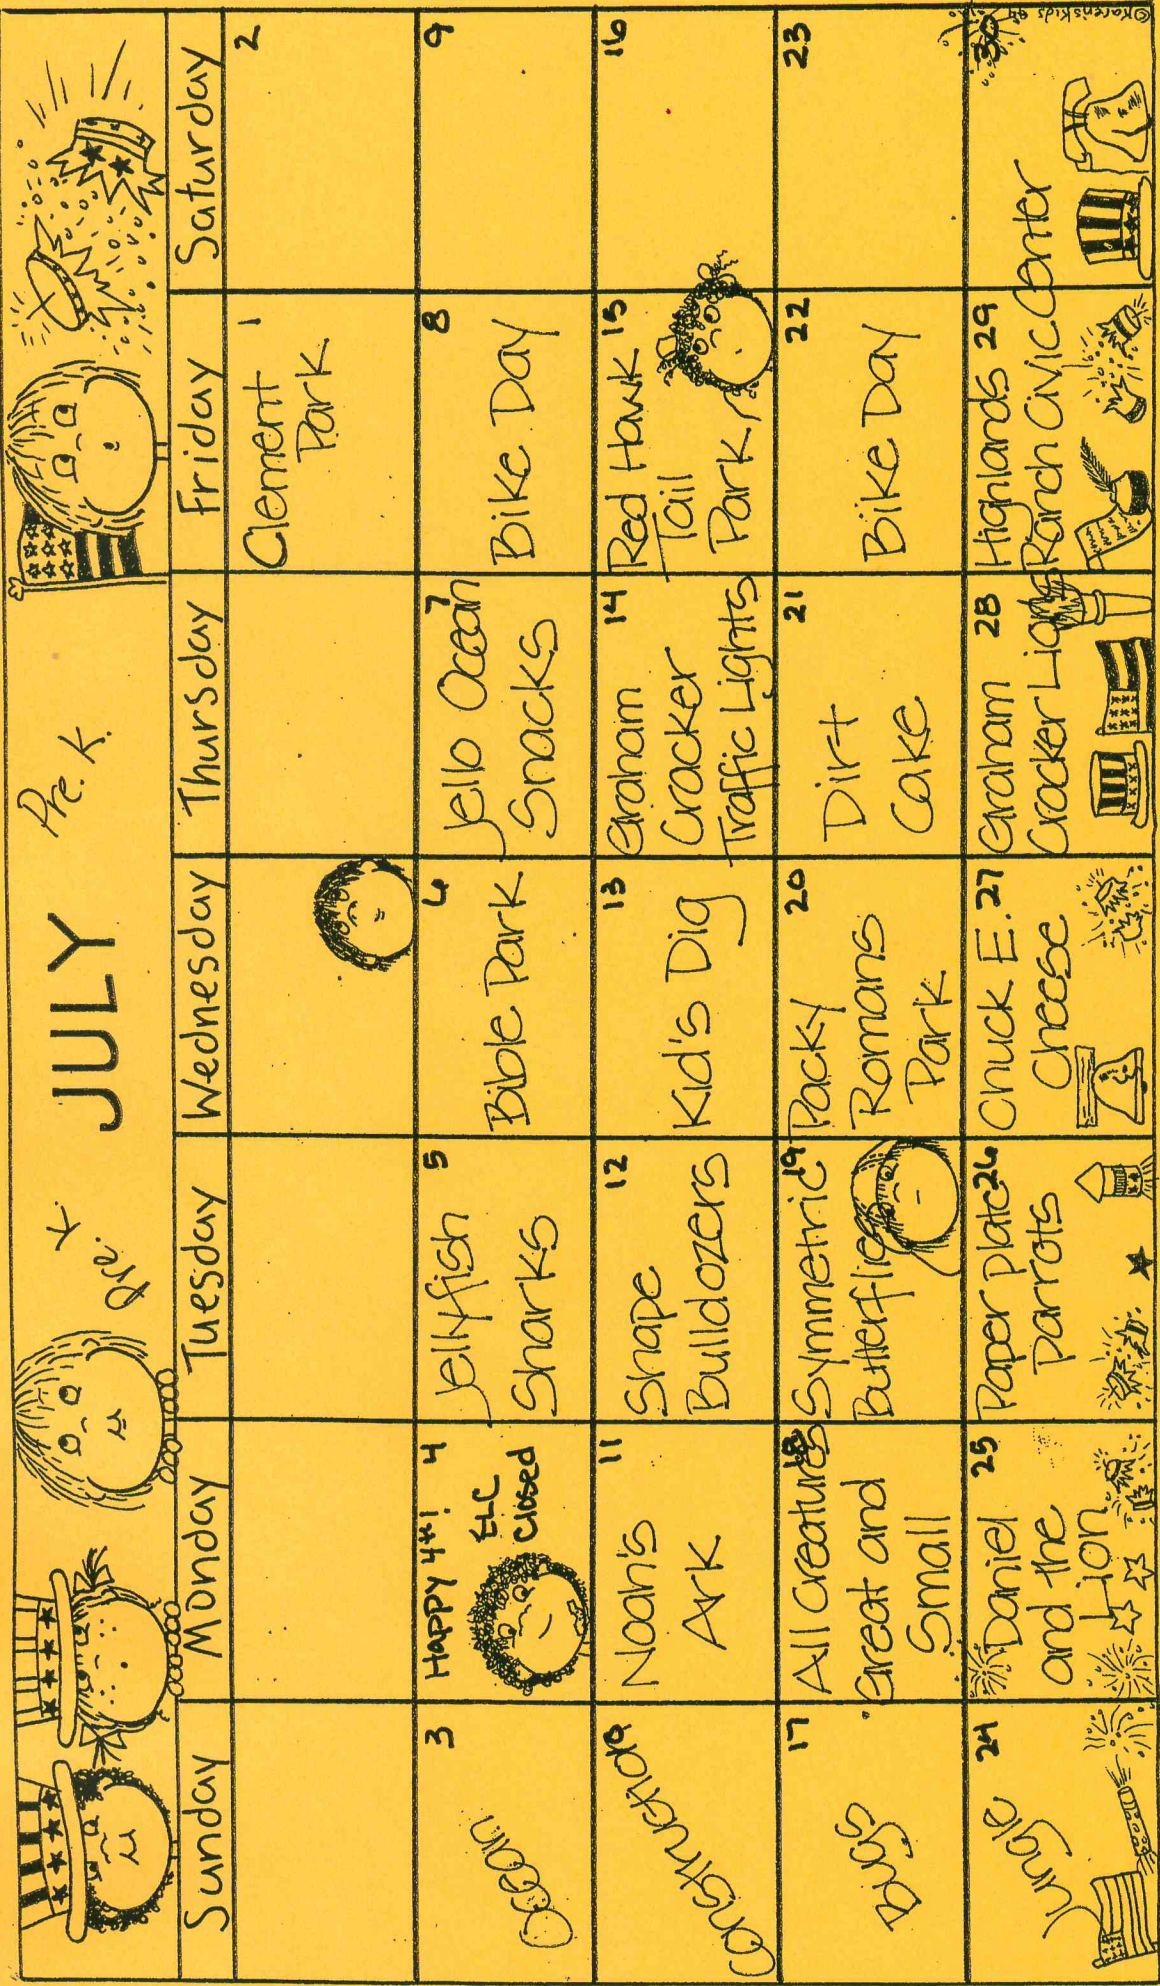 Pre. K JULY Pre. K.
Sunday Monday Tuesday Wednesday Thursday Friday Saturday
1
Clement
Park
2
3
Ocean
Happy 4th! 4
ELC
Closed
5
Jellyfish
Sharks
6
Bible Park
7
Jello Ocean
Snacks
8
Bike Day
9
10
Construction
11
Noah's
Ark
12
Shape
Bulldozers
13
Kid's Dig
14
Graham
Cracker
Traffic Lights
Red Hawk 15
Tail
Park
16
17
Bugs
18
All Creatures
Great and
Small
19
Symmetric
Butterflies
20
Packy
Romans
Park
21
Dirt
Cake
22
Bike Day
23
24
Jungle
25
Daniel
and the
Lion
Paper plate 26
parrots
Chuck E. 27
Cheese
Graham 28
Cracker Lions
Highlands 29
Ranch Civic Center
30
©Karen's Kids 94